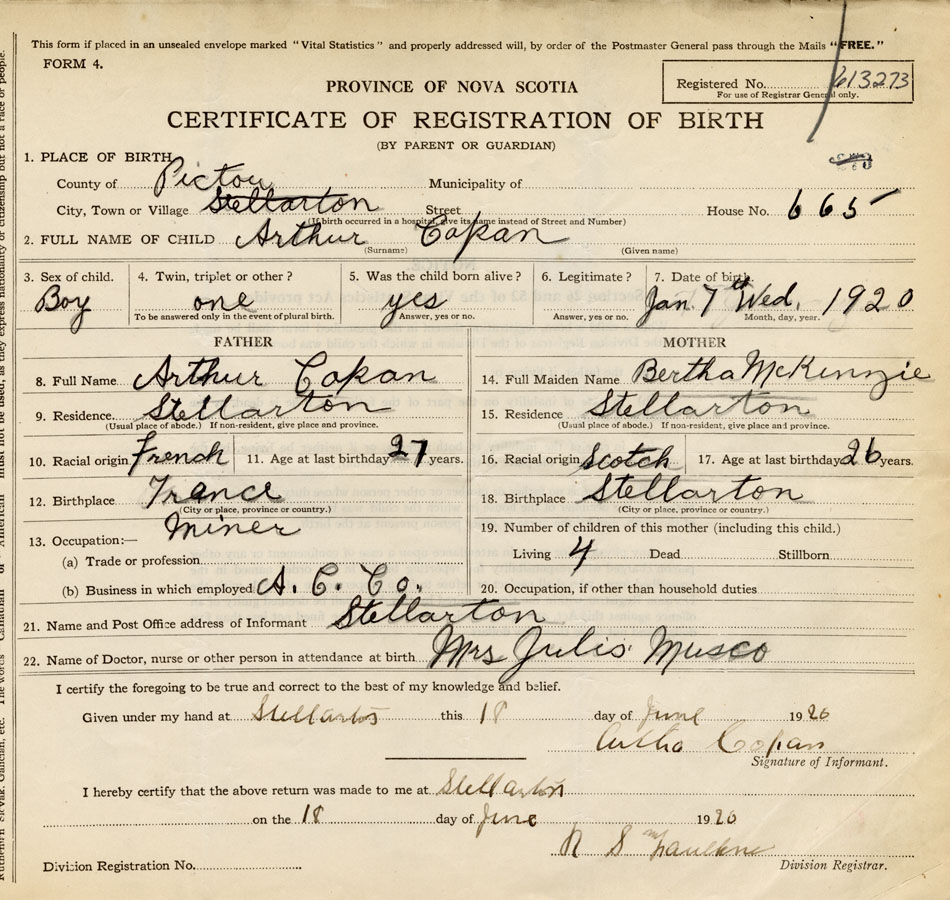 This form if placed in an unsealed envelope marked "Vital Statistics" and properly addressed will, by order of the Postmaster General pass through the Mails "FREE."
FORM 4.
Registered No. 613273
For use of Registrar General only.
PROVINCE OF NOVA SCOTIA
CERTIFICATE OF REGISTRATION OF BIRTH
(BY PARENT OR GUARDIAN)
1. PLACE OF BIRTH
County of Pictou Municipality of
City, Town or Village Stellarton Street House No. 665
(If birth occurred in a hospital, give its name instead of Street and Number)
2. FULL NAME OF CHILD Arthur Copan
(Surname) (Given name)
3. Sex of child. 4. Twin, triplet or other? 5. Was the child born alive? 6. Legitimate? 7. Date of birth.
Boy one yes Jan 7th Wed. 1920
To be answered only in the event of plural birth. Answer, yes or no. Answer, yes or no. Month, day, year.
FATHER
8. Full Name Arthur Copan
9. Residence Stellarton
(Usual place of abode.) If non-resident, give place and province.
10. Racial origin French 11. Age at last birthday 27 years.
12. Birthplace France
(City or place, province or country.)
Miner
13. Occupation:—
(a) Trade or profession
(b) Business in which employed A. C. Co.
MOTHER
14. Full Maiden Name Bertha McKenzie
15. Residence Stellarton
(Usual place of abode.) If non-resident, give place and province.
16. Racial origin Scotch 17. Age at last birthday 26 years.
18. Birthplace Stellarton
(City or place, province or country.)
19. Number of children of this mother (including this child.)
Living 4 Dead Stillborn
20. Occupation, if other than household duties
21. Name and Post Office address of Informant Stellarton
22. Name of Doctor, nurse or other person in attendance at birth Mrs Julis Musco
I certify the foregoing to be true and correct to the best of my knowledge and belief.
Given under my hand at Stellarton this 18 day of June 1920
Artho Copan
Signature of Informant.
I hereby certify that the above return was made to me at Stellarton
on the 18 day of June 1920
N S
Division Registration No. Division Registrar.